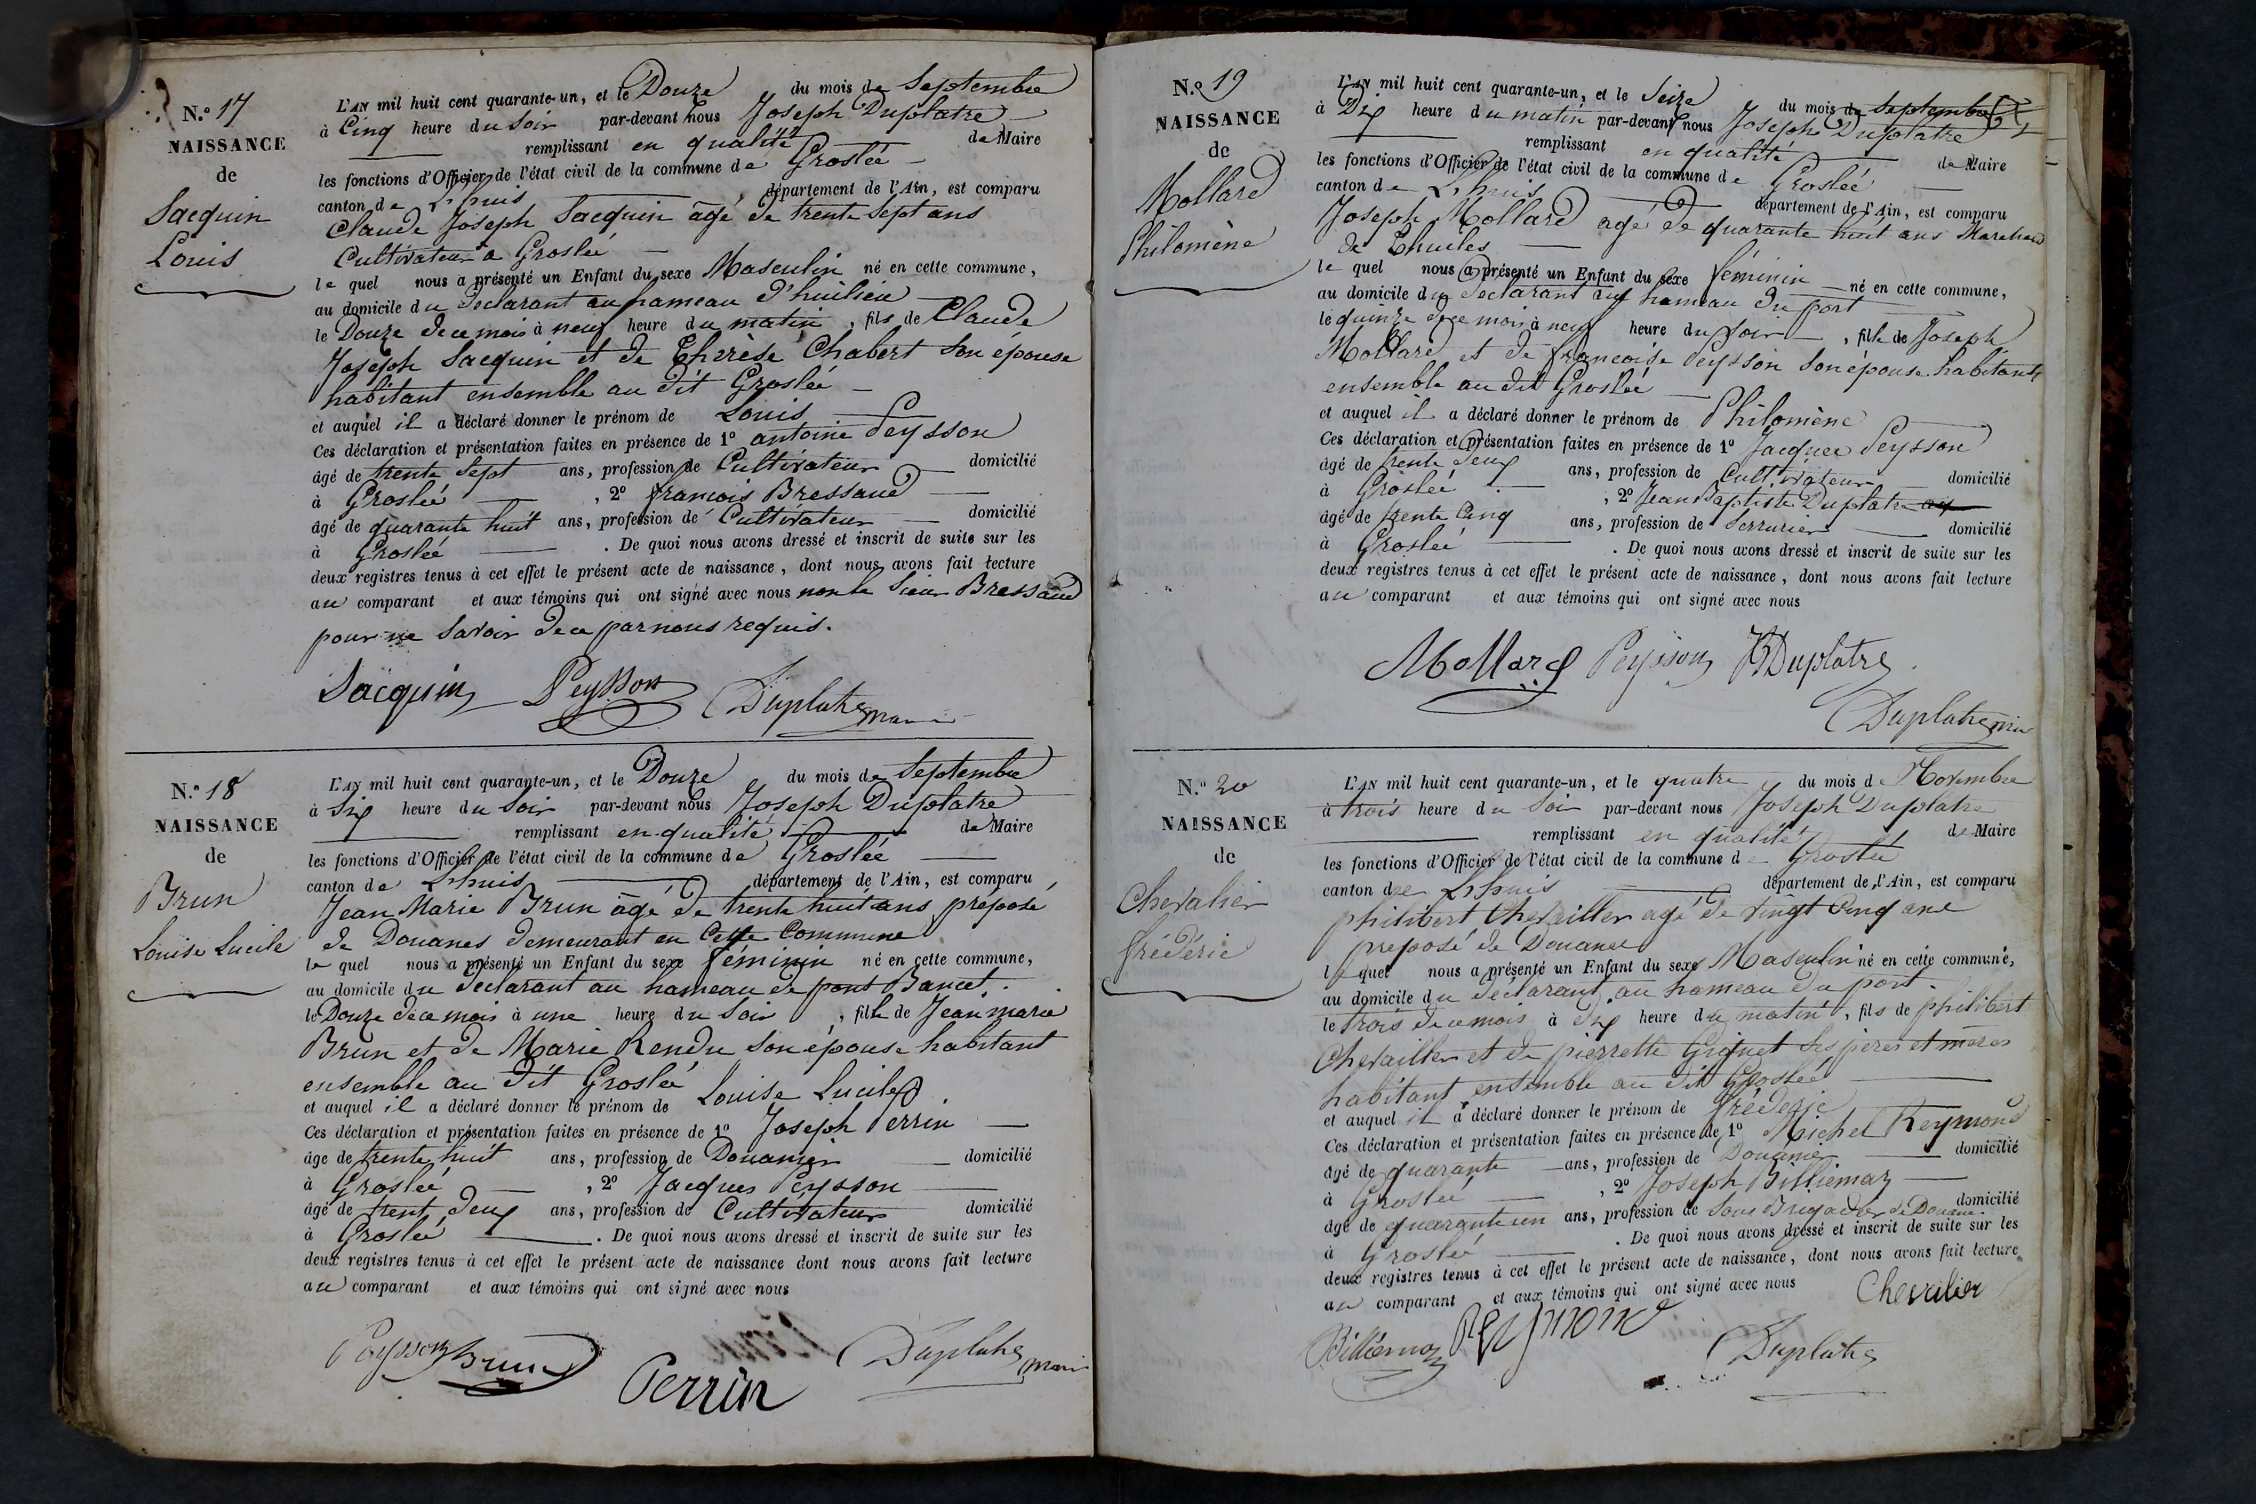 N.º 17
NAISSANCE
de
Jacquin
Louis
L'AN mil huit cent quarante-un, et le Douze du mois de Septembre
à Cinq heure du Soir par-devant nous Joseph Duplatre
remplissant en qualité de Maire
les fonctions d'Officier de l'état civil de la commune de Groslée
canton de L'huis département de l'Ain, est comparu
Claude Joseph Jacquin âgé de trente Sept ans
Cultivateur a Groslée
le quel nous a présenté un Enfant du sexe Masculin né en cette commune,
au domicile du déclarant au hameau d'huilieu
le Douze de ce mois à neuf heure du matin, fils de Claude
Joseph Jacquin et de Therèse Chabert Son épouse
habitant ensemble au dit Groslée
et auquel il a déclaré donner le prénom de Louis
Ces déclaration et présentation faites en présence de 1º antoine Peysson
âgé de trente Sept ans, profession de Cultivateur domicilié
à Groslée, 2º francois Bressaud
âgé de quarante huit ans, profession de Cultivateur domicilié
à Groslée. De quoi nous avons dressé et inscrit de suite sur les
deux registres tenus à cet effet le présent acte de naissance, dont nous avons fait lecture
au comparant et aux témoins qui ont signé avec nous non le Sieur Bressaud
pour ne Savoir de ce par nous requis.
Jacquin Peysson Duplatre
N.º 18
NAISSANCE
de
Brun
Louise Lucile
L'AN mil huit cent quarante-un, et le Douze du mois de Septembre
à Six heure du Soir par-devant nous Joseph Duplatre
remplissant en qualité de Maire
les fonctions d'Officier de l'état civil de la commune de Groslée
canton de Lhuis département de l'Ain, est comparu
Jean Marie Brun âgé de trente huit ans préposé
de Douanes demeurant en Cette Commune
le quel nous a présenté un Enfant du sexe féminin né en cette commune,
au domicile du déclarant au hameau de pont Bancet.
le Douze de ce mois à une heure du Soir, fille de Jean marie
Brun et de Marie Rendu Son épouse habitant
ensemble au dit Groslée
et auquel il a déclaré donner le prénom de Louise Lucile
Ces déclaration et présentation faites en présence de 1º Joseph Perrin
âge de trente huit ans, profession de Douanier domicilié
à Groslée, 2º Jacques Peysson
âgé de trent deux ans, profession de Cultivateur domicilié
à Groslée. De quoi nous avons dressé et inscrit de suite sur les
deux registres tenus à cet effet le présent acte de naissance dont nous avons fait lecture
au comparant et aux témoins qui ont signé avec nous
Peysson Brun Perrin Duplatre
N.º 19
NAISSANCE
de
Mollard
Philomène
L'AN mil huit cent quarante-un, et le Seize du mois de Septembre
à Dix heure du matin par-devant nous Joseph Duplatre
remplissant en qualité de Maire
les fonctions d'Officier de l'état civil de la commune de Groslée
canton de L'huis département de l'Ain, est comparu
Joseph Mollard agé de quarante huit ans Marchand
de Thuiles
le quel nous a présenté un Enfant du sexe féminin né en cette commune,
au domicile du déclarant au hameau du port
le quinze de ce mois à neuf heure du Soir, fille de Joseph
Mollard et de francoise Peysson Son épouse habitants
ensemble au dit Groslée
et auquel il a déclaré donner le prénom de Philomène
Ces déclaration et présentation faites en présence de 1º Jacques Peysson
âgé de trente deux ans, profession de Cultivateur domicilié
à Groslée, 2º Jean Baptiste Duplatre
âgé de trente Cinq ans, profession de Serrurier domicilié
à Groslée. De quoi nous avons dressé et inscrit de suite sur les
deux registres tenus à cet effet le présent acte de naissance, dont nous avons fait lecture
au comparant et aux témoins qui ont signé avec nous
Mollard Peysson JB Duplatre
Duplatre
N.º 20
NAISSANCE
de
Chevalier
frédéric
L'AN mil huit cent quarante-un, et le quatre du mois de Novembre
à trois heure du Soir par-devant nous Joseph Duplatre
remplissant en qualité de Maire
les fonctions d'Officier de l'état civil de la commune de Groslée
canton de L'huis département de l'Ain, est comparu
philibert Chevailler agé de vingt Cinq ans
préposé de Douanes
le quel nous a présenté un Enfant du sexe Masculin né en cette commune,
au domicile du déclarant au hameau du port.
le trois de ce mois à dix heure du matin, fils de philibert
Chevailler et de pierrette Giguet Ses pères et mères
habitant ensemble au dit Groslée
et auquel il a déclaré donner le prénom de frédéric
Ces déclaration et présentation faites en présence de 1º Michel Reymond
âgé de quarante ans, profession de Douanier domicilié
à Groslée, 2º Joseph Billiemaz
âgé de quarante un ans, profession de Sous Brigadier de Douane domicilié
à Groslée. De quoi nous avons dressé et inscrit de suite sur les
deux registres tenus à cet effet le présent acte de naissance, dont nous avons fait lecture
au comparant et aux témoins qui ont signé avec nous Chevalier
Billiemaz Reymond Duplatre